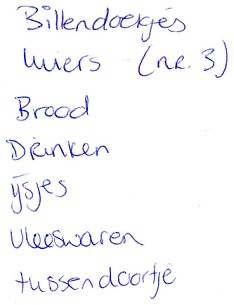 Billendoekjes
luiers (nr. 3)
Brood
Drinken
ijsjes
vleeswaren
tussendoortje